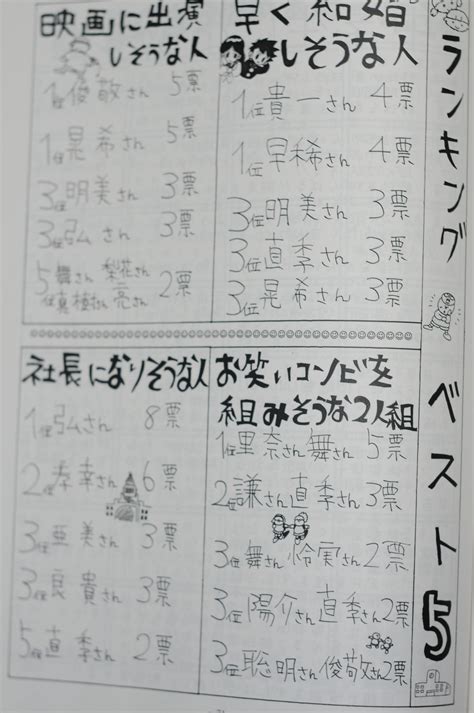 ランキング ベスト5
早く結婚
しそうな人
1位貴一さん 4票
1位早稀さん 4票
3位明美さん 3票
3位直季さん 3票
3位晃希さん 3票
映画に出演
しそうな人
1位俊敬さん 5票
1位晃希さん 5票
3位明美さん 3票
3位弘さん 3票
5位舞さん 梨花さん
真樹さん 亮さん 2票
お笑いコンビを
組みそうな2人組
1位里奈さん舞さん 5票
2位謙さん直季さん3票
3位舞さん怜実さん2票
3位陽介さん直季さん2票
3位聡明さん俊敬さん2票
社長になりそうな人
1位弘さん 8票
2位孝幸さん 6票
3位亜美さん 3票
3位良貴さん 3票
5位直季さん 2票